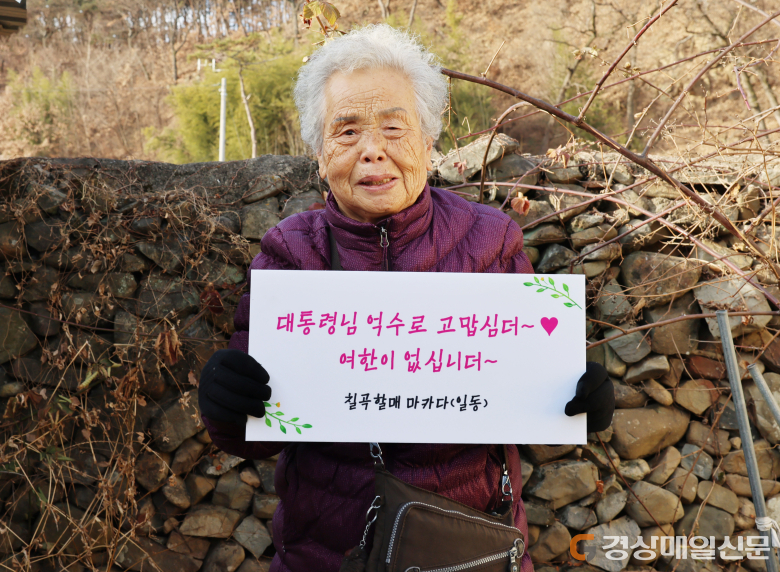 대통령님 억수로 고맙심더~♥
여한이 없십니더~
칠곡할매 마카다(일동)
경상매일신문